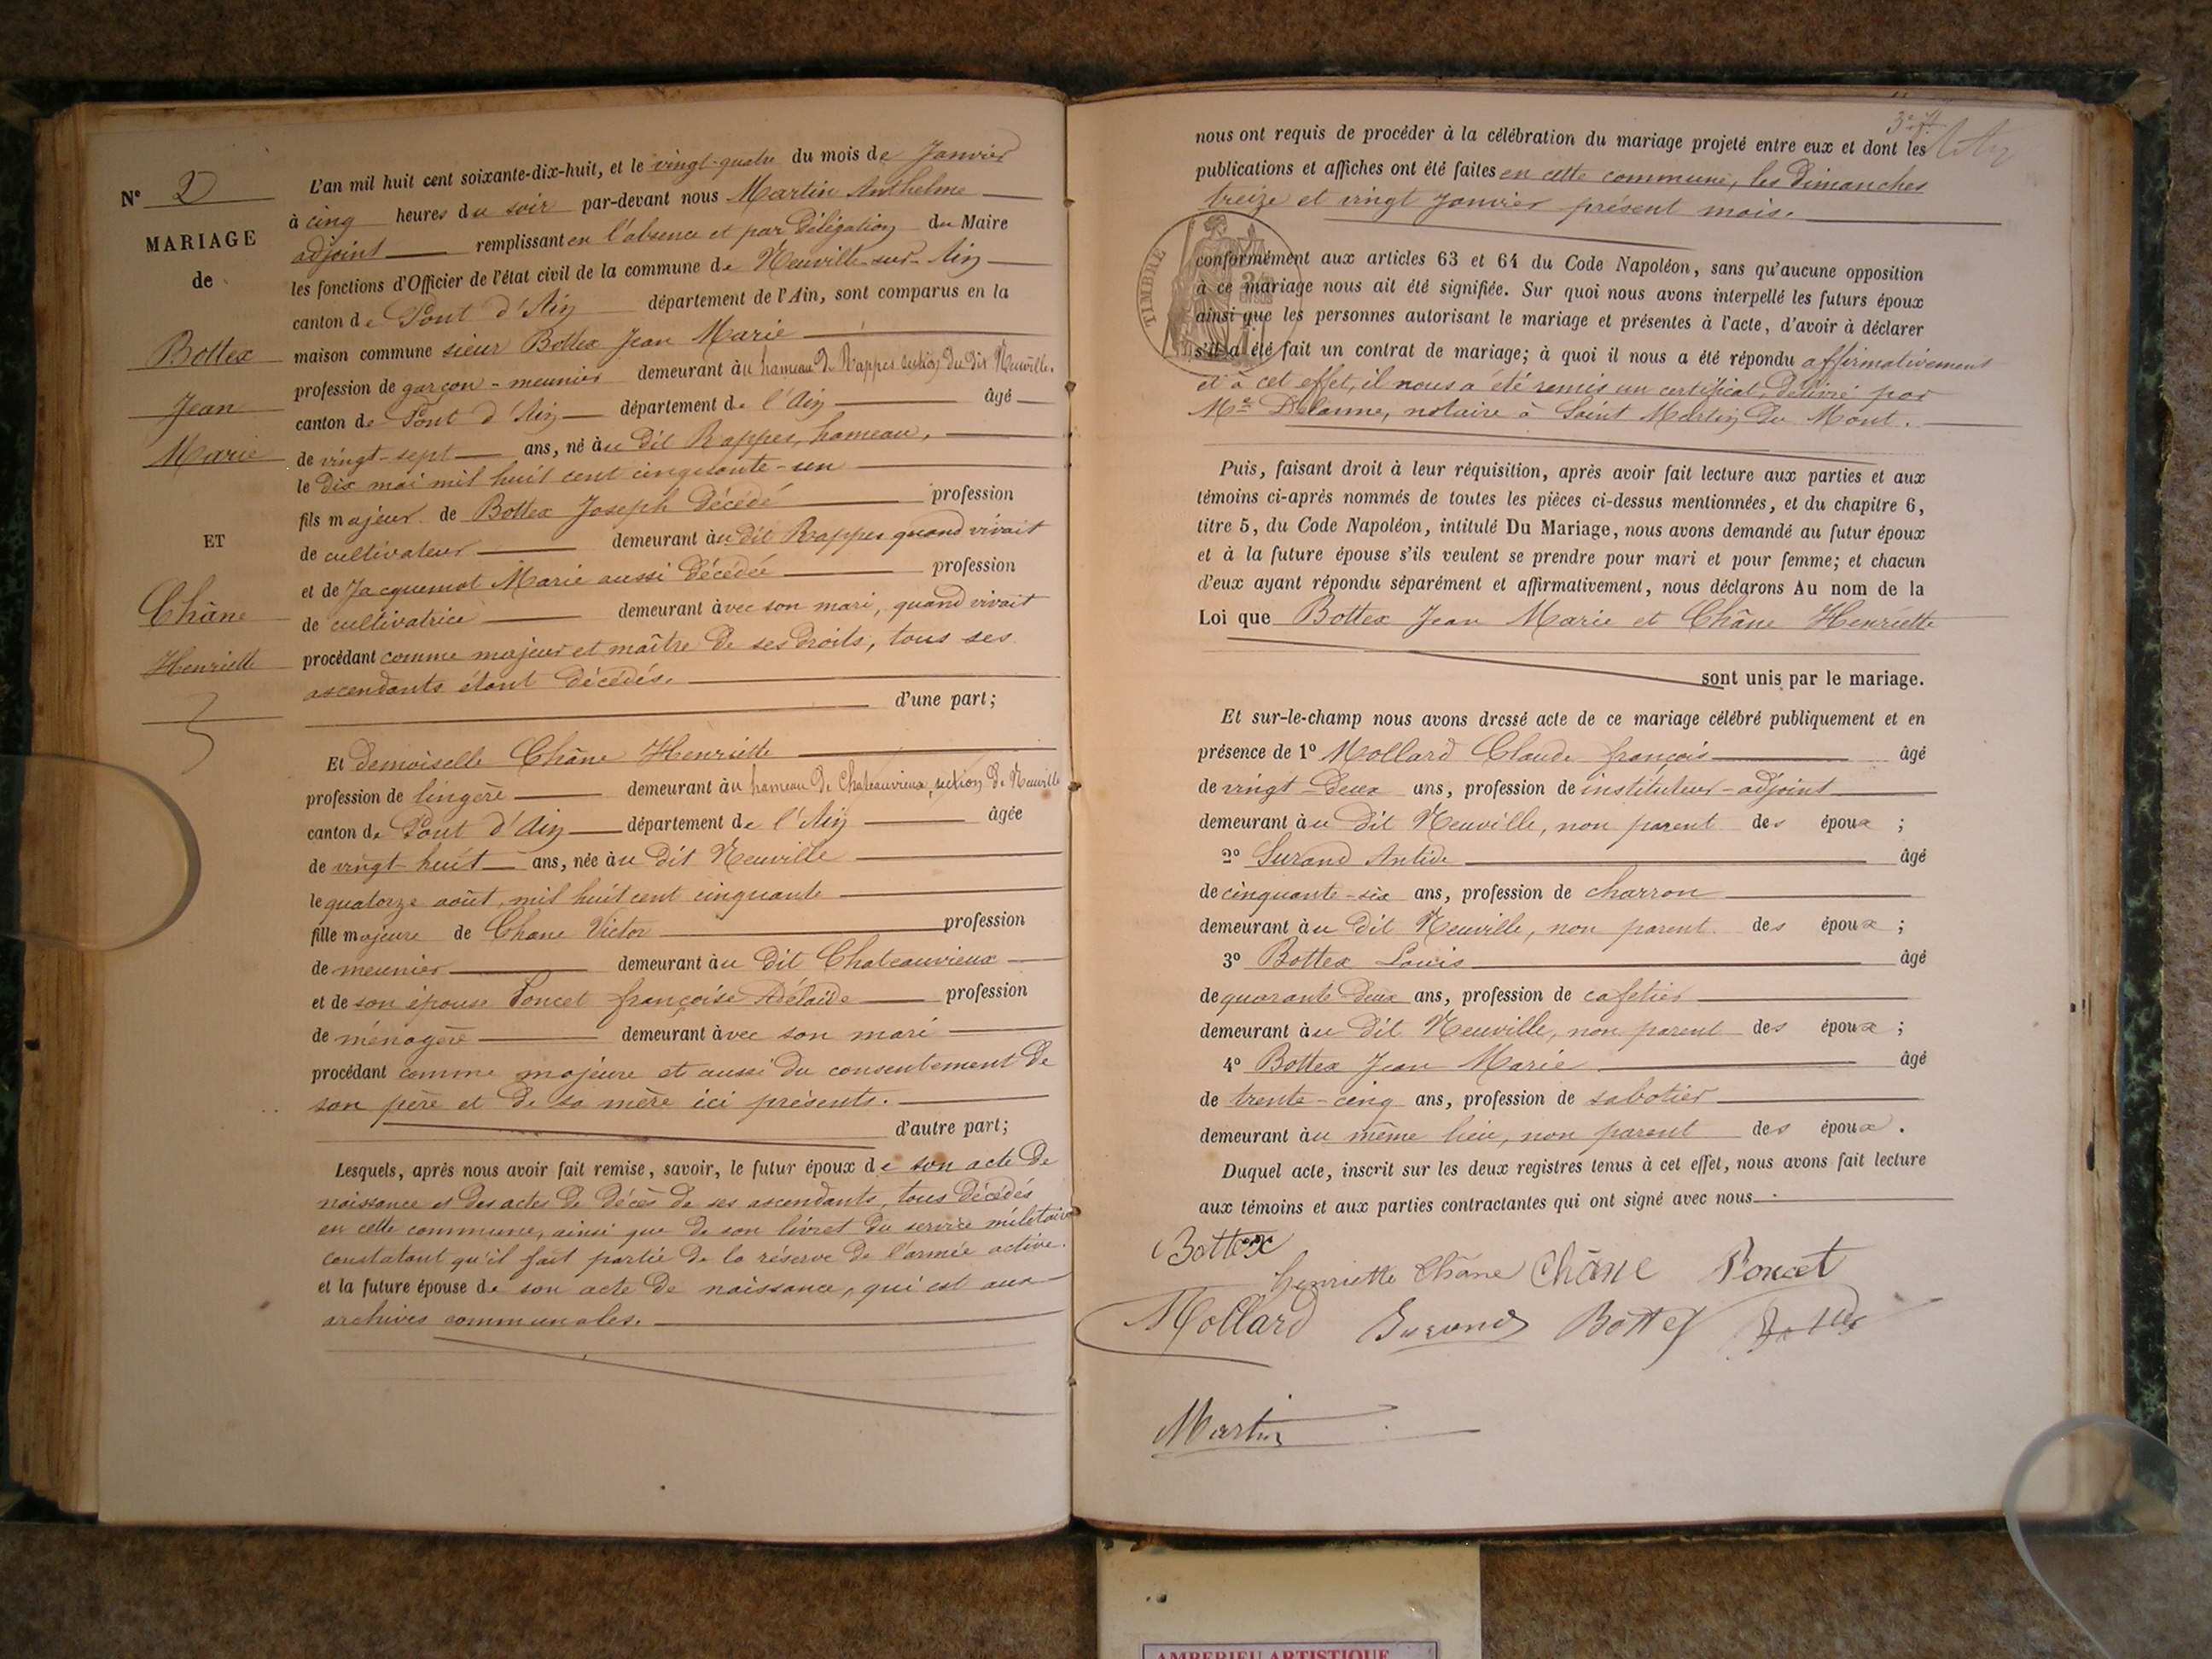 N° 2
MARIAGE
de
Bottex
Jean
Marie
ET
Châne
Henriette
L'an mil huit cent soixante-dix-huit, et le vingt-quatre du mois de Janvier
à cinq heures du soir par-devant nous Martin Anthelme
adjoint remplissant en l'absence et par délégation du Maire
les fonctions d'Officier de l'état civil de la commune de Neuville-sur-Ain
canton de Pont d'Ain département de l'Ain, sont comparus en la
maison commune sieur Bottex Jean Marie
profession de garçon-meunier demeurant au hameau de Rappes section du dit Neuville.
canton de Pont d'Ain département de l'Ain âgé
de vingt-sept ans, né au dit Rappes, hameau,
le dix mai mil huit cent cinquante-un
fils majeur de Bottex Joseph décédé profession
de cultivateur demeurant au dit Rappes quand vivait
et de Jacquemot Marie aussi décédée profession
de cultivatrice demeurant avec son mari, quand vivait
procédant comme majeur et maître de ses droits, tous ses
ascendants étant décédés.
d'une part;
Et demoiselle Châne Henriette
profession de lingère demeurant au hameau de Chateauvieux, section de Neuville
canton de Pont d'Ain département de l'Ain âgée
de vingt-huit ans, née au dit Neuville
le quatorze août, mil huit cent cinquante
fille majeure de Chane Victor profession
de meunier demeurant au dit Chateauvieux
et de son épouse Poncet françoise Adélaïde profession
de ménagère demeurant avec son mari
procédant comme majeure et aussi du consentement de
son père et de sa mère ici présents.
d'autre part;
Lesquels, après nous avoir fait remise, savoir, le futur époux de son acte de
naissance et des actes de décès de ses ascendants, tous décédés
en cette commune, ainsi que de son livret du service militaire
constatant qu'il fait partie de la réserve de l'armée active.
et la future épouse de son acte de naissance, qui est aux
archives communales.
nous ont requis de procéder à la célébration du mariage projeté entre eux et dont les
publications et affiches ont été faites en cette commune, les dimanches
treize et vingt Janvier présent mois.
TIMBRE
conformément aux articles 63 et 64 du Code Napoléon, sans qu'aucune opposition
à ce mariage nous ait été signifiée. Sur quoi nous avons interpellé les futurs époux
ainsi que les personnes autorisant le mariage et présentes à l'acte, d'avoir à déclarer
s'il a été fait un contrat de mariage; à quoi il nous a été répondu affirmativement
et à cet effet, il nous a été remis un certificat, délivré par
Me Delanne, notaire à Saint Martin du Mont.
Puis, faisant droit à leur réquisition, après avoir fait lecture aux parties et aux
témoins ci-après nommés de toutes les pièces ci-dessus mentionnées, et du chapitre 6,
titre 5, du Code Napoléon, intitulé Du Mariage, nous avons demandé au futur époux
et à la future épouse s'ils veulent se prendre pour mari et pour femme; et chacun
d'eux ayant répondu séparément et affirmativement, nous déclarons Au nom de la
Loi que Bottex Jean Marie et Châne Henriette
sont unis par le mariage.
Et sur-le-champ nous avons dressé acte de ce mariage célébré publiquement et en
présence de 1° Mollard Claude françois âgé
de vingt-deux ans, profession de instituteur-adjoint
demeurant au dit Neuville, non parent des époux ;
2° Surand Antide âgé
de cinquante-six ans, profession de charron
demeurant au dit Neuville, non parent des époux ;
3° Bottex Louis âgé
de quarante-deux ans, profession de cafetier
demeurant au dit Neuville, non parent des époux ;
4° Bottex Jean Marie âgé
de trente-cinq ans, profession de sabotier
demeurant au même lieu, non parent des époux .
Duquel acte, inscrit sur les deux registres tenus à cet effet, nous avons fait lecture
aux témoins et aux parties contractantes qui ont signé avec nous
Bottex
henriette Chane Châne Poncet
Mollard Surand Bottex Bottex
Martin
AMBERIEU ARTISTIQUE